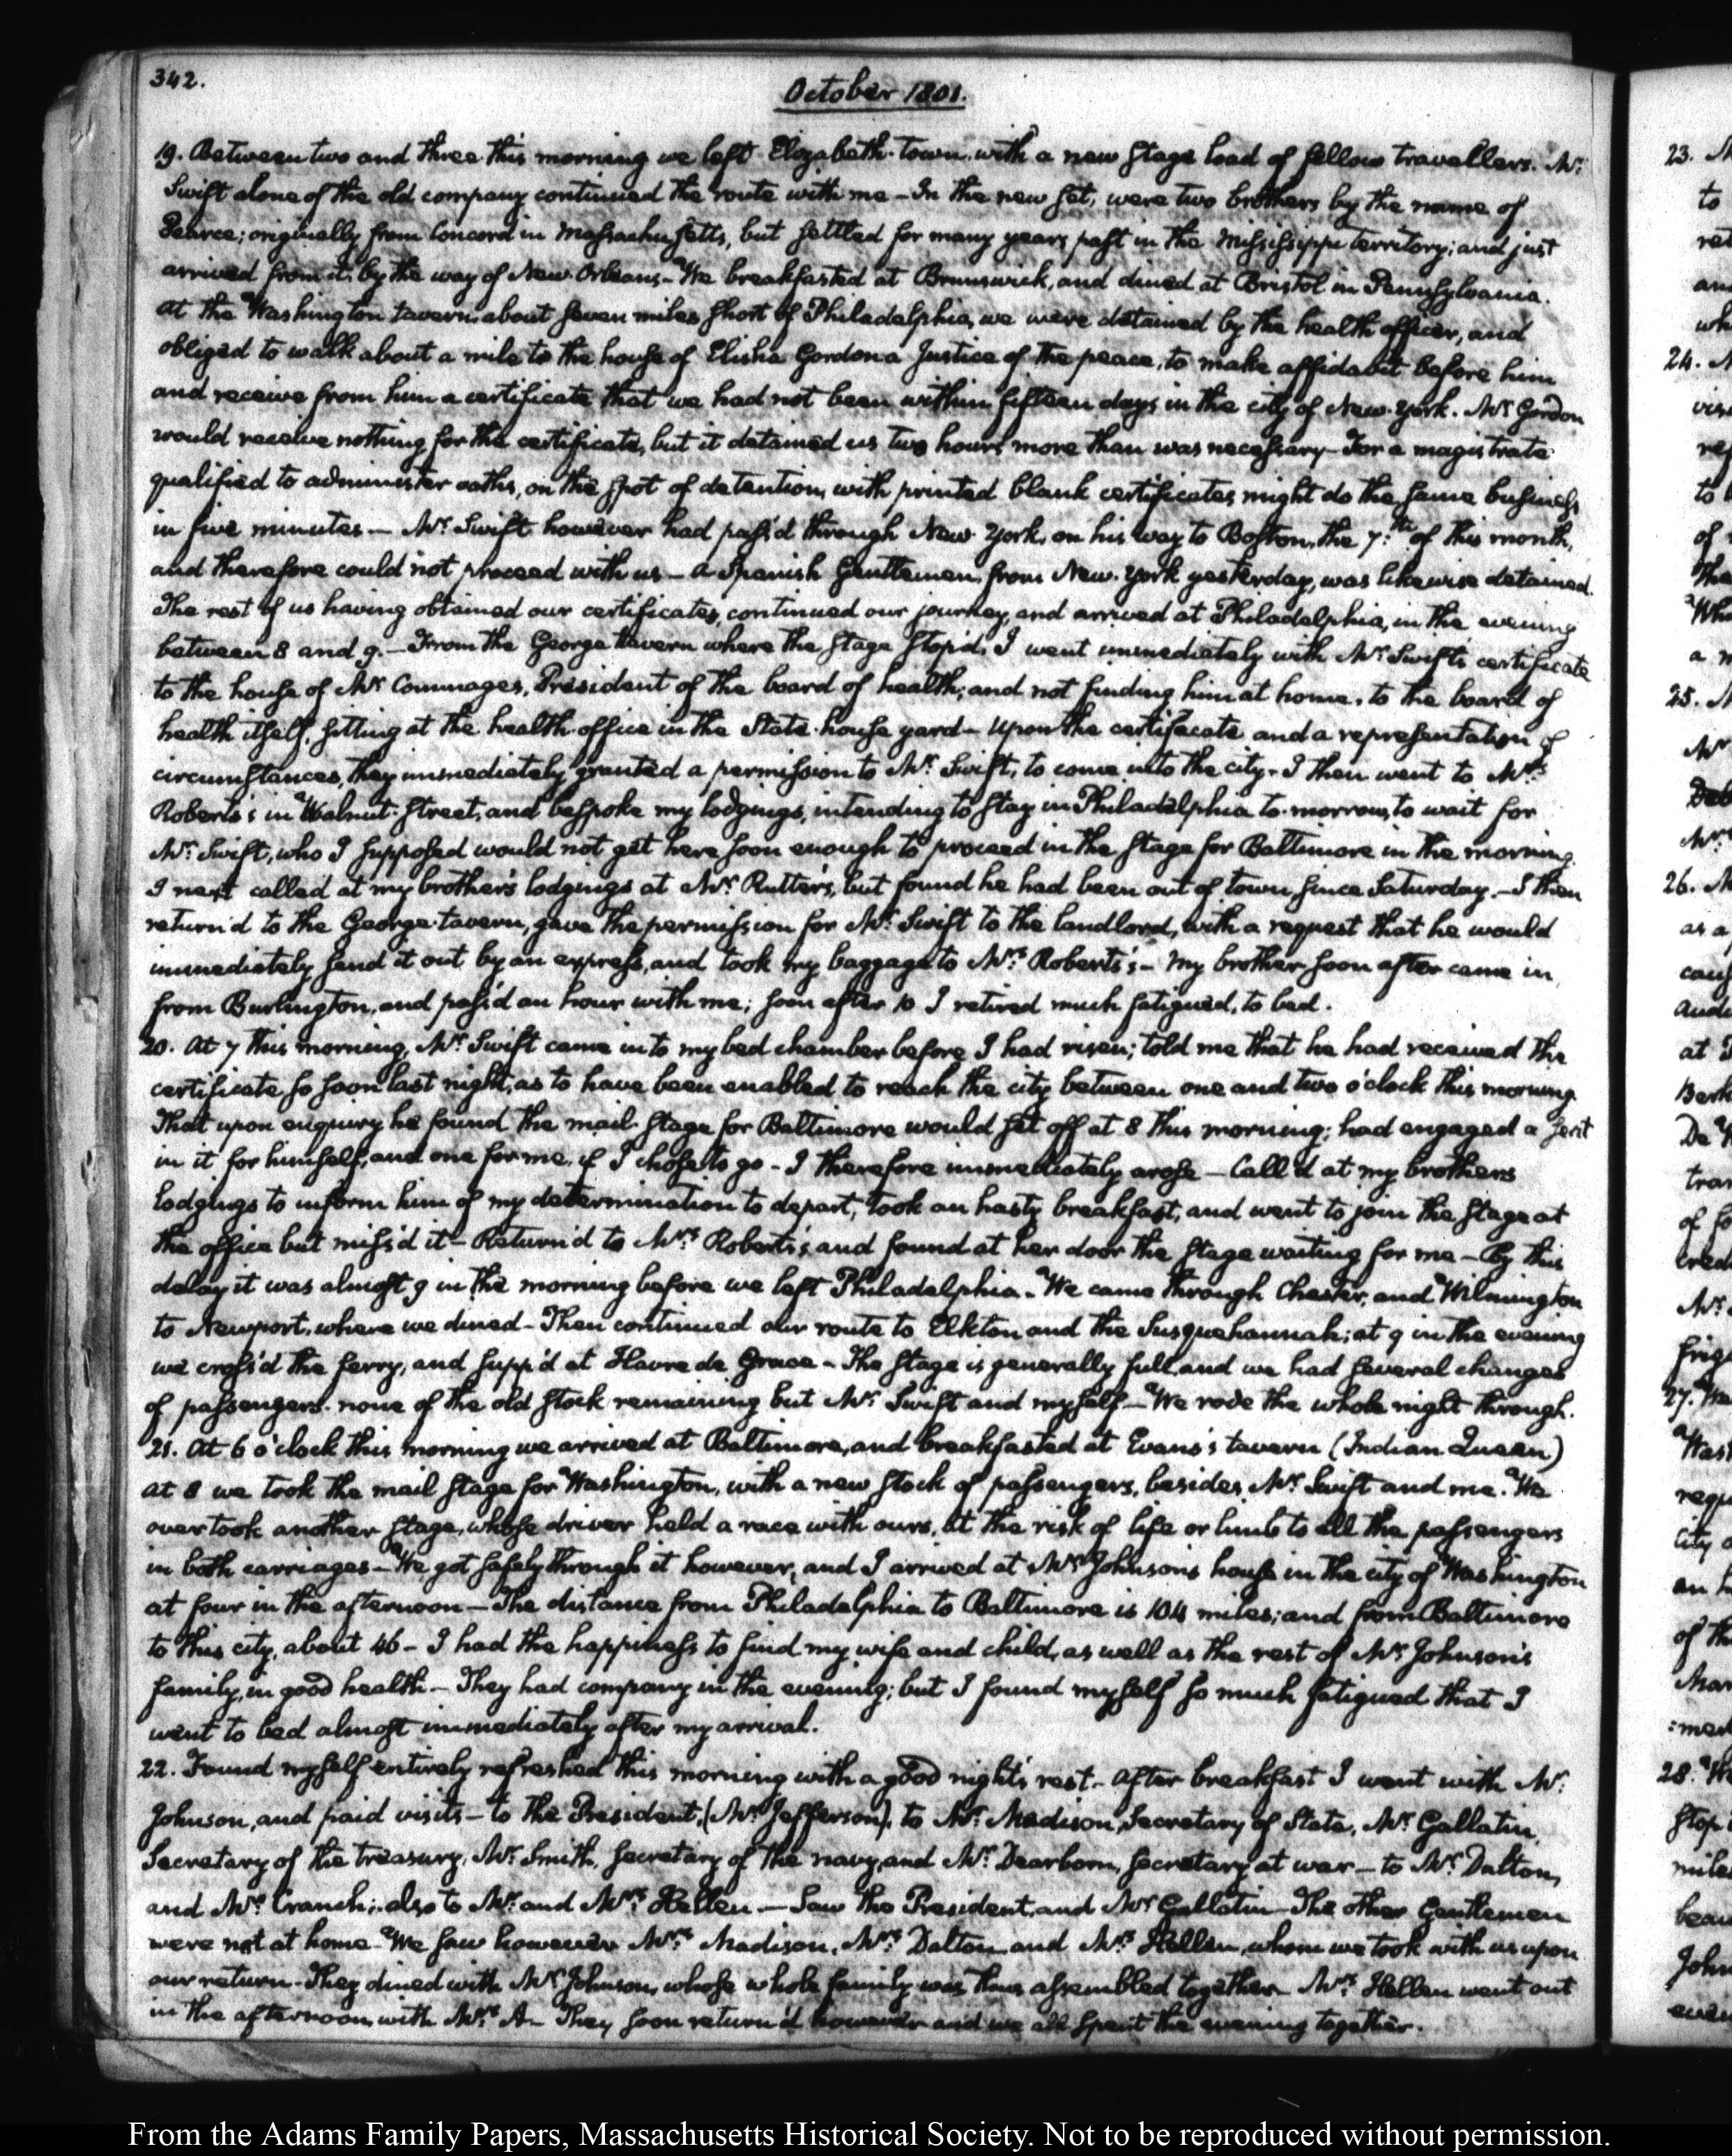 342.
October 1801.
19. Between two and three this morning we left Elizabeth-town, with a new stage load of fellow travellers. Mr.
Swift alone of the old company continued the route with me - In the new set, were two brothers by the name of
Pearce; originally from Concord in Massachusetts, but settled for many years past in the Mississippi territory; and just
arrived from it, by the way of New-Orleans - We breakfasted at Brunswick, and dined at Bristol in Pennsylvania.
At the Washington tavern, about seven miles short of Philadelphia, we were detained by the health officer, and
obliged to walk about a mile to the house of Elisha Gordon a Justice of the peace, to make affidavit before him
and receive from him a certificate that we had not been within fifteen days in the city of New-York. Mr. Gordon
would receive nothing for the certificate, but it detained us two hours more than was necessary - For a magistrate
qualified to administer oaths, on the spot of detention, with printed blank certificates might do the same business
in five minutes - Mr. Swift however had pass'd through New-York, on his way to Boston, the 7th. of this month,
and therefore could not proceed with us - A Spanish Gentleman, from New-York yesterday, was likewise detained.
The rest of us having obtained our certificates, continued our journey, and arrived at Philadelphia, in the evening
between 8 and 9. - From the George tavern where the stage stop'd, I went immediately with Mr. Swift's certificate
to the house of Mr. Commages, President of the board of health; and not finding him at home, to the board of
health itself, sitting at the health-office in the State-house yard - Upon the certificate and a representation of
circumstances, they immediately granted a permission to Mr. Swift, to come into the city - I then went to Mrs.
Roberts's in Walnut-Street, and bespoke my lodgings, intending to stay in Philadelphia to-morrow, to wait for
Mr. Swift, who I supposed would not get here soon enough to proceed in the stage for Baltimore in the morning.
I next called at my brother's lodgings at Mr. Rutter's, but found he had been out of town since Saturday. - I then
return'd to the George-tavern, gave the permission for Mr. Swift to the landlord, with a request that he would
immediately send it out by an express, and took my baggage to Mrs. Roberts's - My brother soon after came in
from Burlington, and pass'd an hour with me; soon after 10 I retired much fatigued, to bed.
20. At 7 this morning, Mr. Swift came into my bed chamber before I had risen; told me that he had received the
certificate so soon last night, as to have been enabled to reach the city between one and two o'clock this morning.
That upon enquiry he found the mail-stage for Baltimore would set off at 8 this morning; had engaged a seat
in it for himself, and one for me, if I chose to go - I therefore immediately arose - Call'd at my brothers
lodgings to inform him of my determination to depart, took an hasty breakfast, and went to join the stage at
the office but miss'd it - Return'd to Mrs. Roberts's, and found at her door the stage waiting for me - By this
delay it was almost 9 in the morning before we left Philadelphia. We came through Chester, and Wilmington
to Newport, where we dined - Then continued our route to Elkton and the Susquehannah; at 9 in the evening
we cross'd the ferry, and supp'd at Havre de Grace - The stage is generally full, and we had several changes
of passengers - none of the old stock remaining but Mr. Swift and myself - We rode the whole night through.
21. At 6 o'clock this morning we arrived at Baltimore, and breakfasted at Evans's tavern (Indian Queen)
at 8 we took the mail stage for Washington, with a new stock of passengers, besides Mr. Swift and me. We
overtook another stage, whose driver held a race with ours, at the risk of life or limb to all the passengers
in both carriages - We got safely through it however, and I arrived at Mr. Johnson's house in the city of Washington
at four in the afternoon - The distance from Philadelphia to Baltimore is 104 miles; and from Baltimore
to this city, about 46 - I had the happiness to find my wife and child, as well as the rest of Mr. Johnson's
family, in good health - They had company in the evening; but I found myself so much fatigued that I
went to bed almost immediately after my arrival.
22. Found myself entirely refreshed this morning with a good night's rest. - After breakfast I went with Mr.
Johnson, and paid visits - to the President, (Mr. Jefferson), to Mr. Madison, Secretary of State, Mr. Gallatin,
Secretary of the treasury, Mr. Smith, secretary of the navy, and Mr. Dearborn, secretary at war - to Mr. Dalton,
and Mr. Cranch; also to Mr. and Mrs. Hellen - Saw the President, and Mr. Gallatin - The other Gentlemen
were not at home - We saw however Mrs. Madison, Mrs. Dalton and Mrs. Hellen, whom we took with us upon
our return - They dined with Mr. Johnson, whose whole family was thus assembled together - Mrs. Hellen went out
in the afternoon, with Mrs. A - They soon return'd however and we all spent the evening together.
23.
to
24.
25.
26.
as a
at
27.
28.
From the Adams Family Papers, Massachusetts Historical Society. Not to be reproduced without permission.